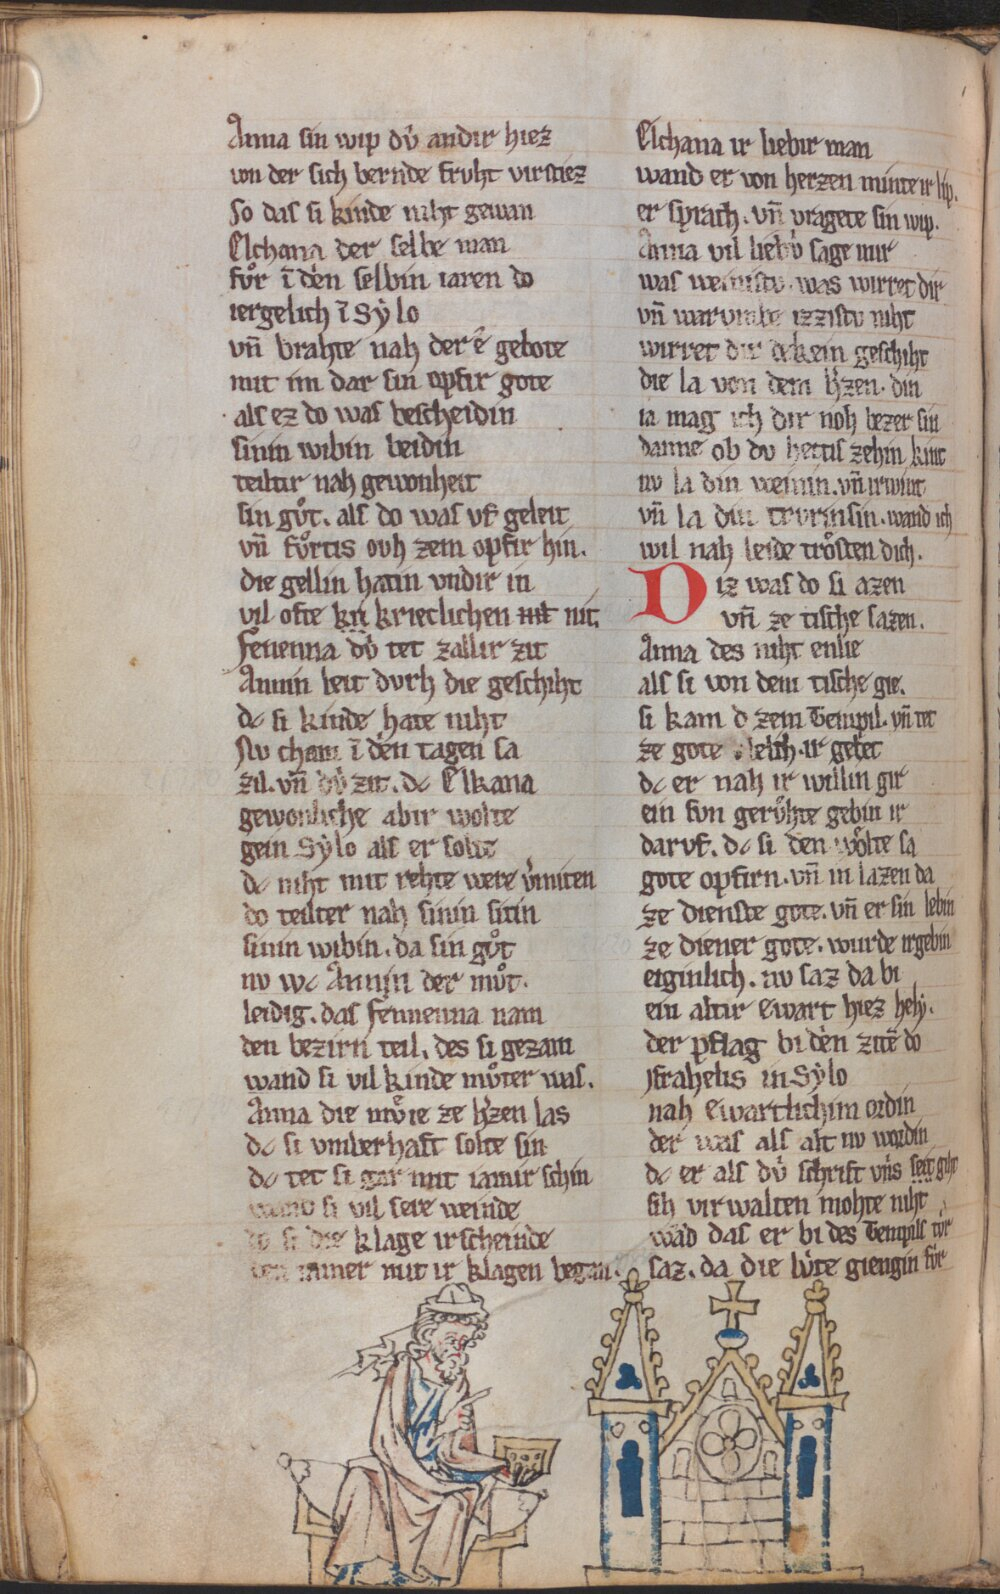 Anna sin wip dv̓ andir hiez
von der sich bernde frvht virstiez
So das si kinde niht gewan
Elchana der selbe man
fvͦr ī den selbin iaren do
iergelich ī Sẏlo
vn̄ brahte nah der ê gebote
mit im dar sin opfir gote
als ez do was bescheidin
sinin wibin beidin
teiltir nah gewonheit
sin gvͦt. als do was vf geleit
vn̄ fvͦrtis ovh zem opfir hin.
die gellin hatin vndir in
vil ofte kri krieclichen nit nit.
fenenna dv̓ tet zallir zit
Annin leit dvrh die geschiht
dc si kinde hate niht
Nv cham ī den tagen sa
zil. vn̄ dv̓ zit. dc Elkana
gewonliche abir wolte
gein Sẏlo als er solte
dc niht mit rehte were v̓miten
do teilter nah sinin sitin
sinin wibin. da sin gvͦt
nv wc Annin der mvͦt.
leidig. das fennenna nam
den bezirn teil. des si gezam
wand si vil kinde mvͦter was.
Anna die mvͤie ze h̓zen las
dc si vmberhaft solte sin
dc tet si gar mit iamir schin
wand si vil sere weinde
do si die klage irscheinde
den iamer mit ir klagen began.
Elchana ir liebir man
wand er von herzen minte ir lip.
er sprach. vn̄ vragete sin wip.
Anna vil liebv̓ sage mir
was weinistv. was wirret dir
vn̄ warvmbe izzistv niht
wirret dir dekein geschiht
die la von dem h̓zen. din
ia mag ich dir noh bezer sin
danne ob dv hettis zehin kint
nv la din weinin. vn̄ irwint
vn̄ la din trvrin sin. wand ich
wil nah leide trͦsten dich.
Diz was do si azen
vn̄ ze tische sazen.
Anna des niht enlie
als si von dem tische gie.
si kam d zem Tempil. vn̄ tet
ze gote ir gebet
dc er nah ir willin gir
ein svn gervͦhte gebin ir
darvf. dc si den wolte sa
gote opfirn. vn̄ in lazen da
ze dienste gote. vn̄ er sin lebin
ze diener gote. wurde irgebin
eiginlich. nv saz da bi
ein altir Ewart hiez helẏ.
der pflag bi den zitē do
Jsrahelis in Sẏlo
nah Ewartlichim ordin
der was als alt nv wordin
dc er als dv̓ schrift vn̓s seit giht
sih virwalten mohte niht
wād das er bi des Tempils tv̓r
saz. da die lv̓te giengin fv̓r